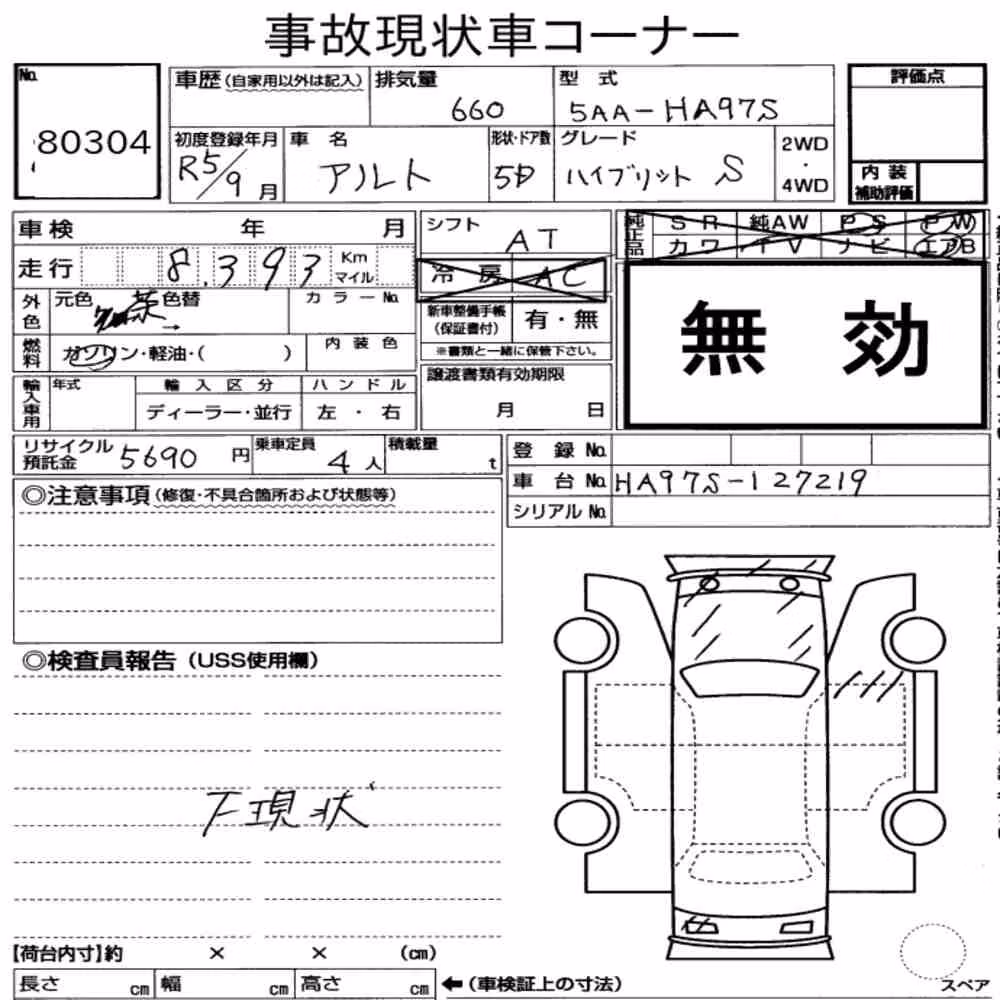 事故現状車コーナー
No. 80304
車歴(自家用以外は記入) 排気量 660 型式 5AA-HA97S
初度登録年月 R5/9月 車名 アルト 形状・ドア数 5D グレード ハイブリット S 2WD・4WD
評価点
内装補助評価
車検 年 月
シフト AT
純正品 SR 純AW PS PW
カワ TV ナビ エアB
走行 8,393 Km マイル
冷房 AC
外色 元色 茶 色替 カラーNo.
新車整備手帳(保証書付) 有・無
※書類と一緒に保管下さい。
無効
燃料 ガソリン・軽油・( ) 内装色
輸入車用 年式 輸入区分 ハンドル
ディーラー・並行 左・右
譲渡書類有効期限
月 日
リサイクル預託金 5690円 乗車定員 4人 積載量 t
登録No.
車台No. HA97S-127219
シリアルNo.
◎注意事項(修復・不具合箇所および状態等)
◎検査員報告(USS使用欄)
下現状
【荷台内寸】約 × × (cm)
長さ cm 幅 cm 高さ cm ←(車検証上の寸法)
スペア